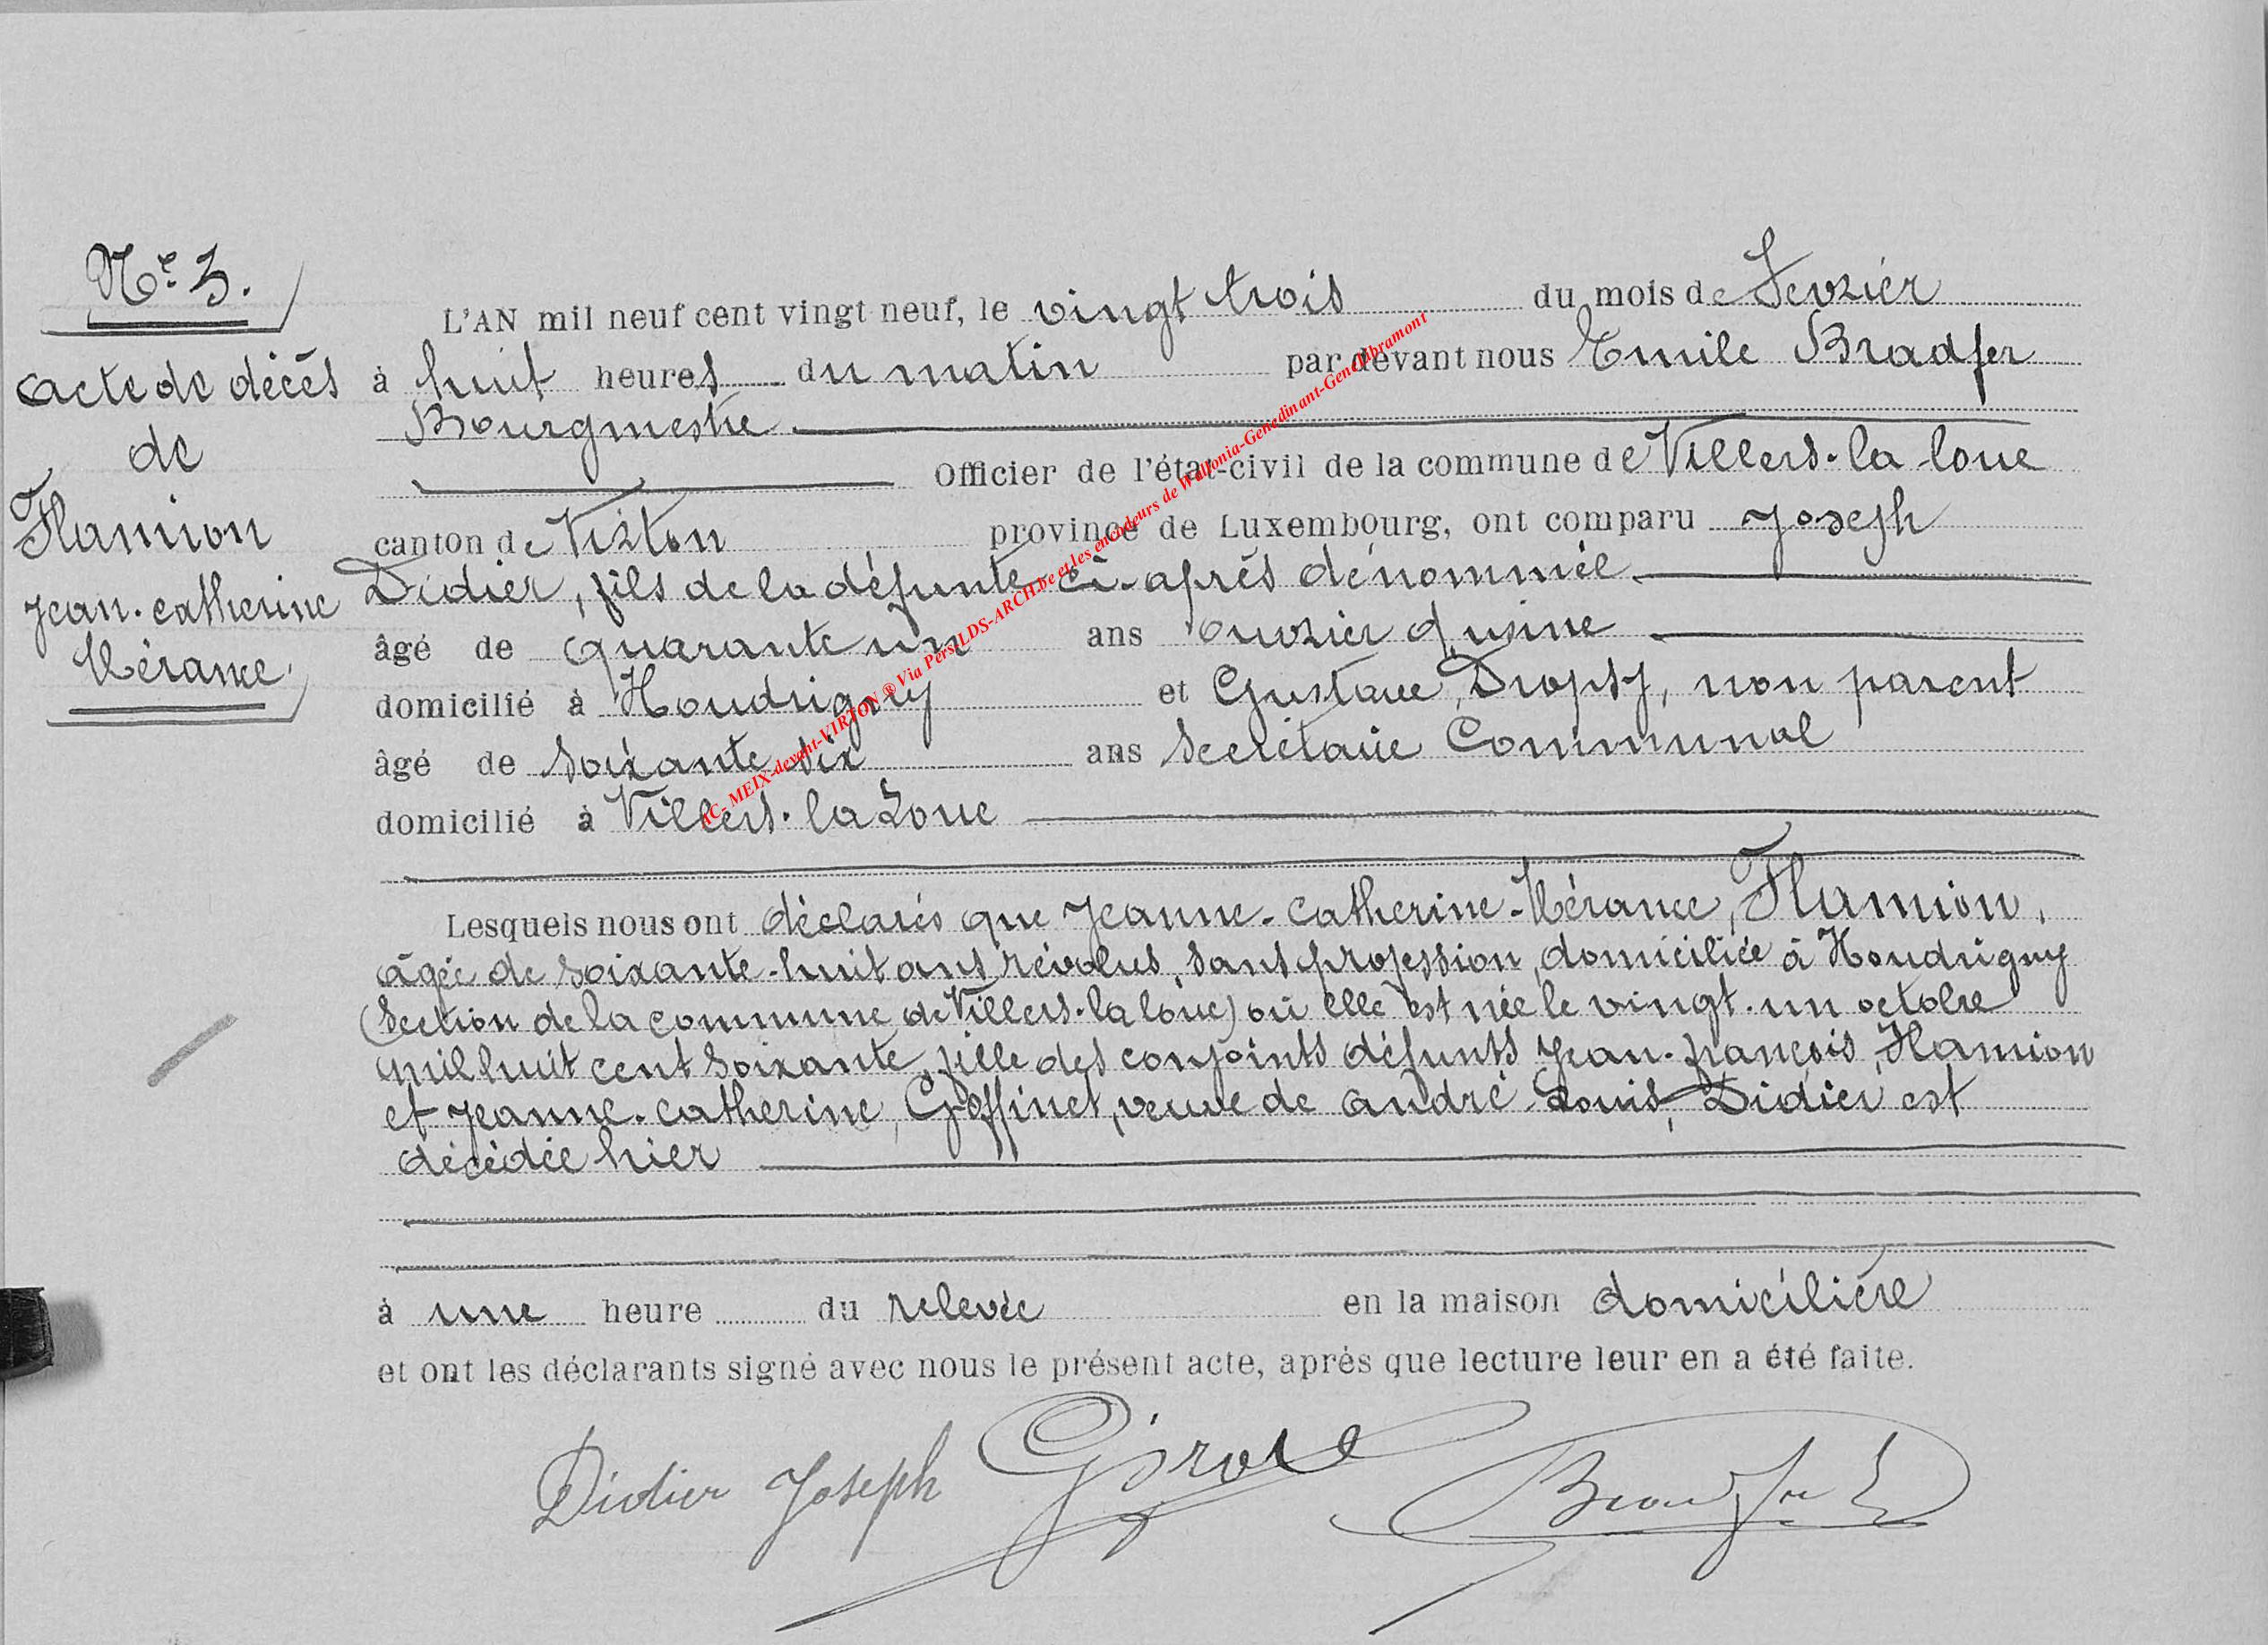 Nº 3.
Acte de décès
de
Flamion
Jean-Catherine
Mérance
L'AN mil neuf cent vingt neuf, le vingt trois du mois de Fevrier
à huit heures du matin par devant nous Emile Bradfer
Bourgmestre
Officier de l'état-civil de la commune de Villers-la-loue
canton de Virton province de Luxembourg, ont comparu Joseph
Didier, fils de la défunte ci-après dénommée
âgé de quarante un ans ouvrier d'usine
domicilié à Houdrigny et Gustave, Dropsy, non parent
âgé de soixante six ans secrétaire Communal
domicilié à Villers-la Loue
Lesquels nous ont déclarés que Jeanne-Catherine-Mérance, Flamion,
âgée de soixante-huit ans révolus, sans profession, domiciliée à Houdrigny
(Section de la commune de Villers-la loue) où elle est née le vingt-un octobre
mil huit cent soixante, fille des conjoints défunts Jean-françois, Flamion
et Jeanne-Catherine, Goffinet, veuve de André-Louis, Didier est
décédée hier
à une heure du relevée en la maison domicilière
et ont les déclarants signé avec nous le présent acte, après que lecture leur en a été faite.
Didier Joseph
Bradfer
AC- MEIX-devant-VIRTON ® Via Pers-LDS-ARCH.be et les encodeurs de Wallonia-Genedinant-Genealibramont